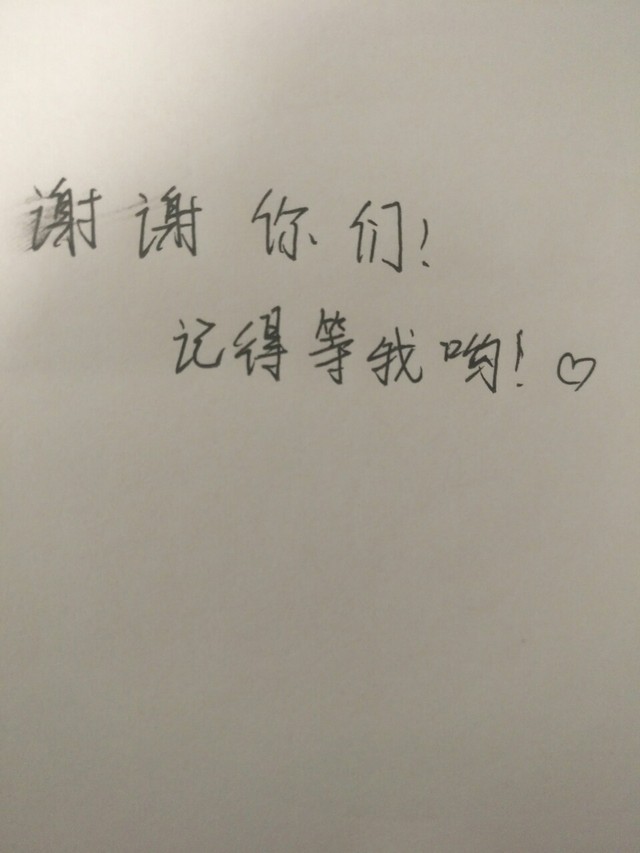 谢谢你们!
记得等我哟!♡